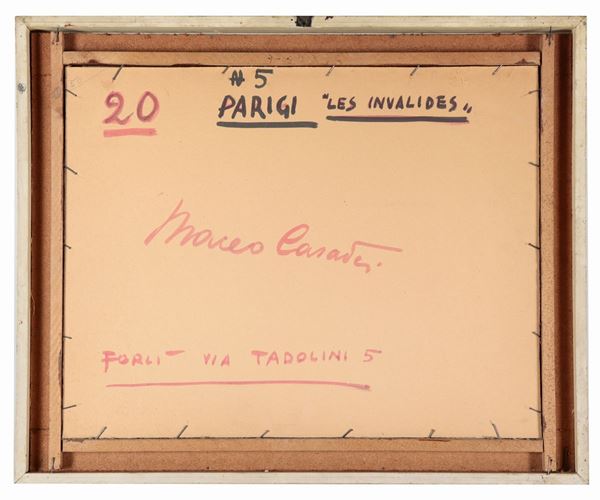 # 5
20 PARIGI "LES INVALIDES"
Maceo Casadei.
FORLI - VIA TADOLINI 5